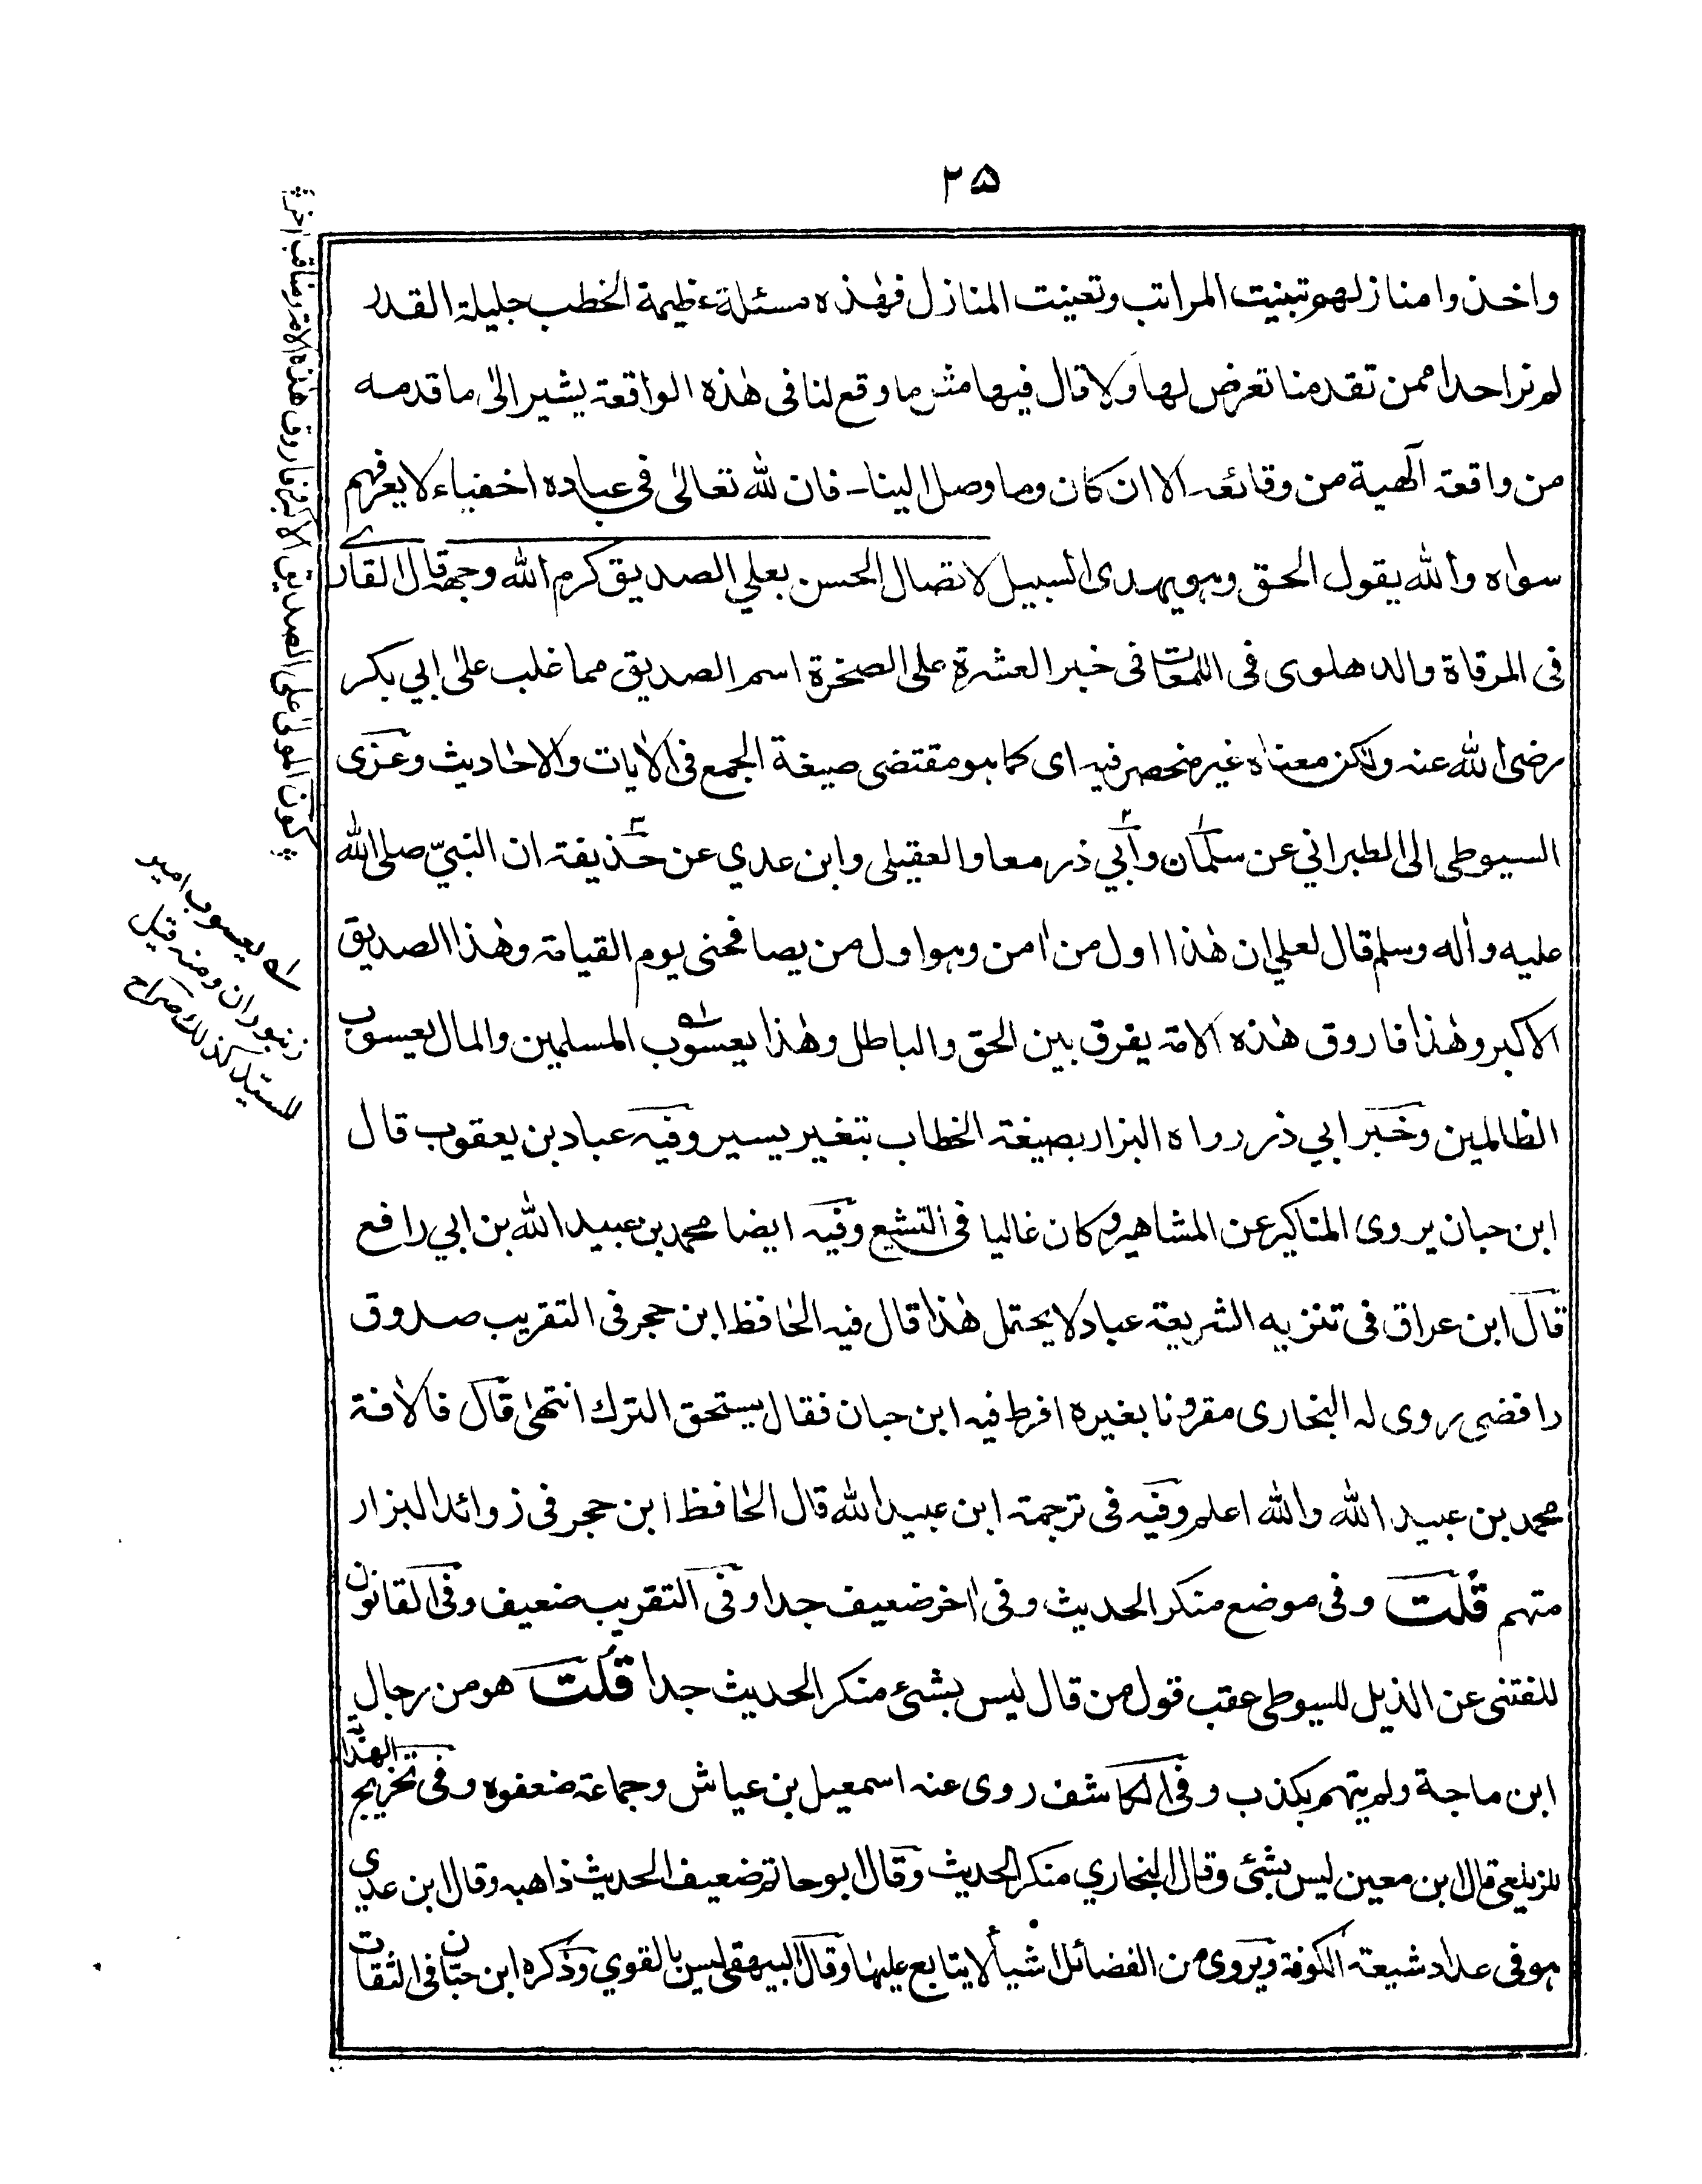 ۲۵
واخذوا منازلهم تبنيت المراتب وتعينت المنازل فهٰذه مسئلة عظيمة الخطب جليلة القدر
لم نر احدا ممن تقدمنا تعرض لها ولا قال فيها مثل ما وقع لنا فى هٰذه الواقعة يشير الىٰ ما قدمه
من واقعة آلهية من وقائعه الا ان كان وما وصل الينا۔ فان لله تعالىٰ فى عباده اخفياء لا يعرفهم
سواه والله يقول الحق وهو يهدى السبيل لاتصال الحسن بعلي الصديق كرم الله وجهه قال القارے
فى المرقاة والدهلوى فى اللمعات فى خبر العشرة على الصخرة اسم الصديق مما غلب علىٰ ابي بكر
رضى الله عنه ولٰكن معناه غير منحصر فيه اى كما هو مقتضى صيغة الجمع فى الاٰيات والاحاديث وعزى
السيوطى الى الطبراني عن سلمان وأبي ذر معا والعقيلى وابن عدي عن حذيفة ان النبيّ صلى الله
عليه واٰله وسلم قال لعلي ان هٰذا اول من اٰمن وهو اول من يصافحنى يوم القيامة وهٰذا الصديق
الاكبر وهٰذا فاروق هٰذه الامة يفرق بين الحق والباطل وهٰذا يعسوب المسلمين والمال يعسوب
الظالمين وخبر ابي ذر رواه البزار بصيغة الخطاب بتغير يسير وفيه عباد بن يعقوب قال
ابن حبان يروى المناكير عن المشاهير وكان غاليا فى التشيع وفيه ايضا محمد بن عبيد الله بن ابي رافع
قال ابن عراق فى تنزيه الشريعة عباد لا يحتمل هٰذا قال فيه الحافظ ابن حجر فى التقريب صدوق
رافضى روى له البخارى مقرونا بغيره افرط فيه ابن حبان فقال يستحق الترك انتهىٰ قال فالاٰفة
محمد بن عبيد الله والله اعلم وفيه فى ترجمة ابن عبيد الله قال الحافظ ابن حجر فى زوائد البزار
متهم قلت وفى موضع منكر الحديث وفى اٰخر ضعيف جدا وفى التقريب ضعيف وفى القانون
للفتنى عن الذيل للسيوطى عقب قول من قال ليس بشئ منكر الحديث جدا قلت هو من رجال
ابن ماجة ولم يتهم بكذب وفى الكاشف روى عنه اسمعيل بن عياش وجماعة ضعفوه وفى تخريج الهداية
للزيلعى قال ابن معين ليس بشئ وقال البخاري منكر الحديث وقال ابو حاتم ضعيف الحديث ذاهبه وقال ابن عدي
هو فى عداد شيعة الكوفة ويروى من الفضائل اشيأ لا يتابع عليها وقال البيهقى ليس بالقوي وذكره ابن حبّان فى الثقات
كون المولى على الصديق الاكبر فاروق هٰذه الامة ومناقب اخرىٰ
له يعسوب امير
زنبوران ومنه قيل
للسيد كذلك صراح